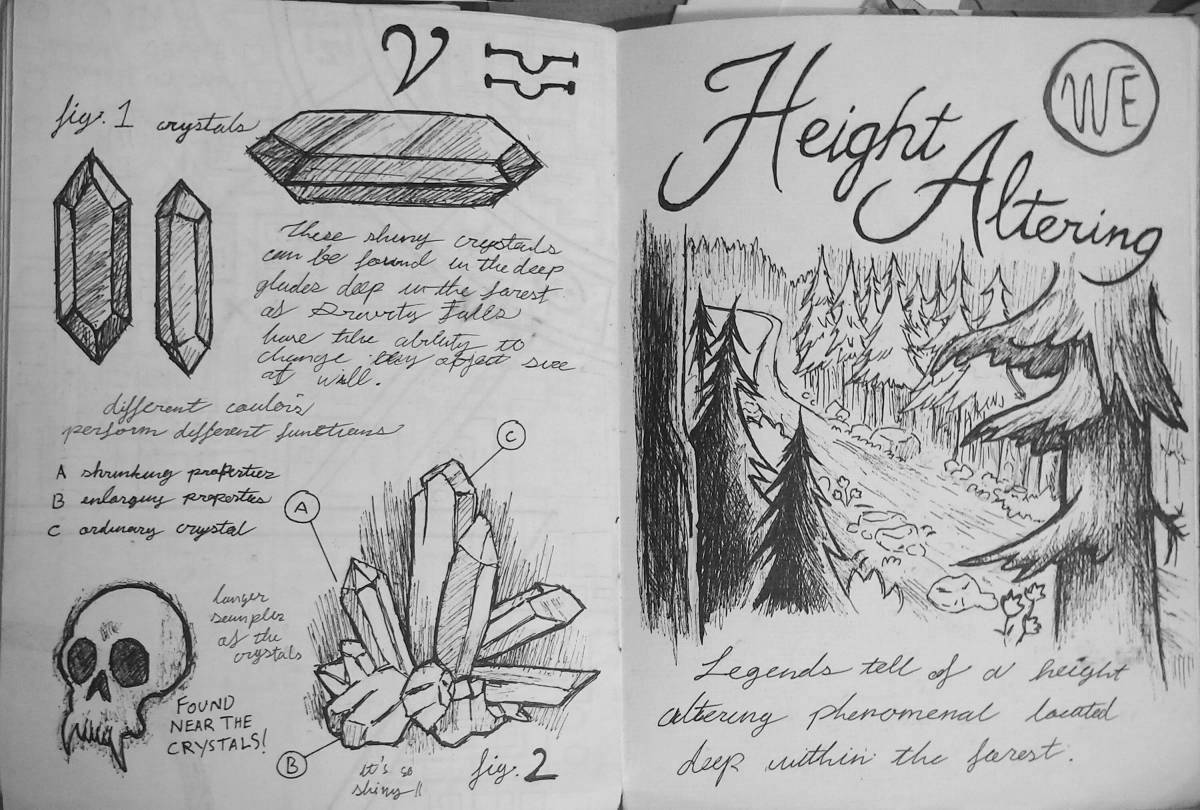 fig. 1 crystals
These shiny crystals
can be found in the deep
glades deep in the forest
of Gravity Falls
have the ability to
change any object size
at will.
different coulors
perform different functions
A shrinking properties
B enlarging properties
C ordinary crystal
C
A
larger
samples
of the
crystals
FOUND
NEAR THE
CRYSTALS!
B
it's so
shiny!!
fig. 2
Height
Altering
WE
Legends tell of a height
altering phenomenal located
deep within the forest.